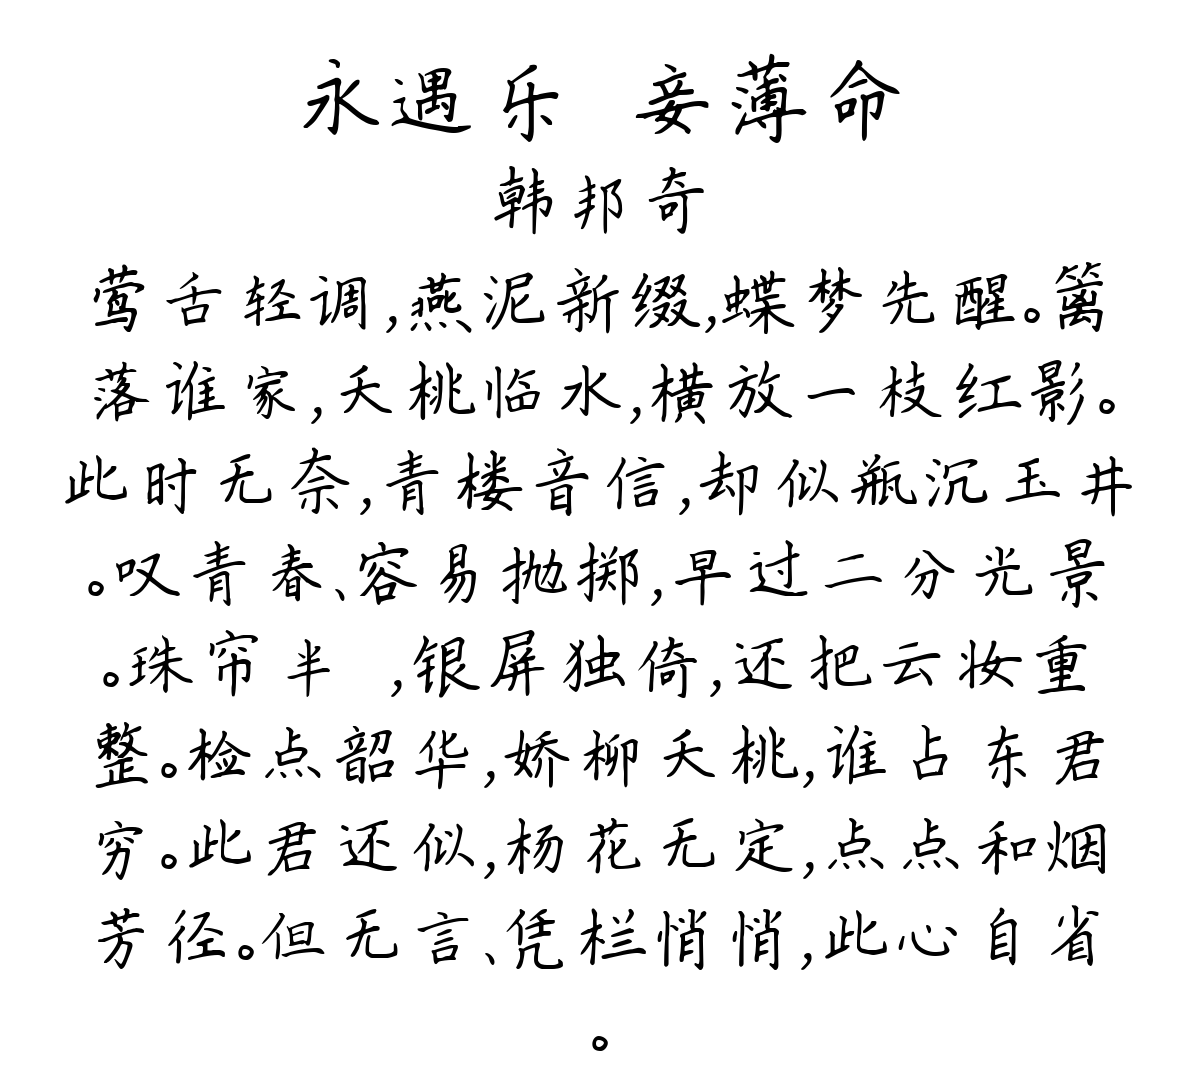 永遇乐 妾薄命
韩邦奇
莺舌轻调,燕泥新缀,蝶梦先醒。篱
落谁家,夭桃临水,横放一枝红影。
此时无奈,青楼音信,却似瓶沉玉井
。叹青春、容易抛掷,早过二分光景
。珠帘半 ,银屏独倚,还把云妆重
整。检点韶华,娇柳夭桃,谁占东君
穷。此君还似,杨花无定,点点和烟
芳径。但无言、凭栏悄悄,此心自省
。